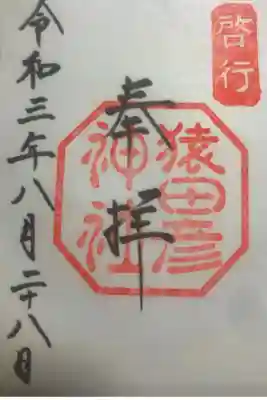 啓行
奉拝
猿田彦
神社
令和三年八月二十八日